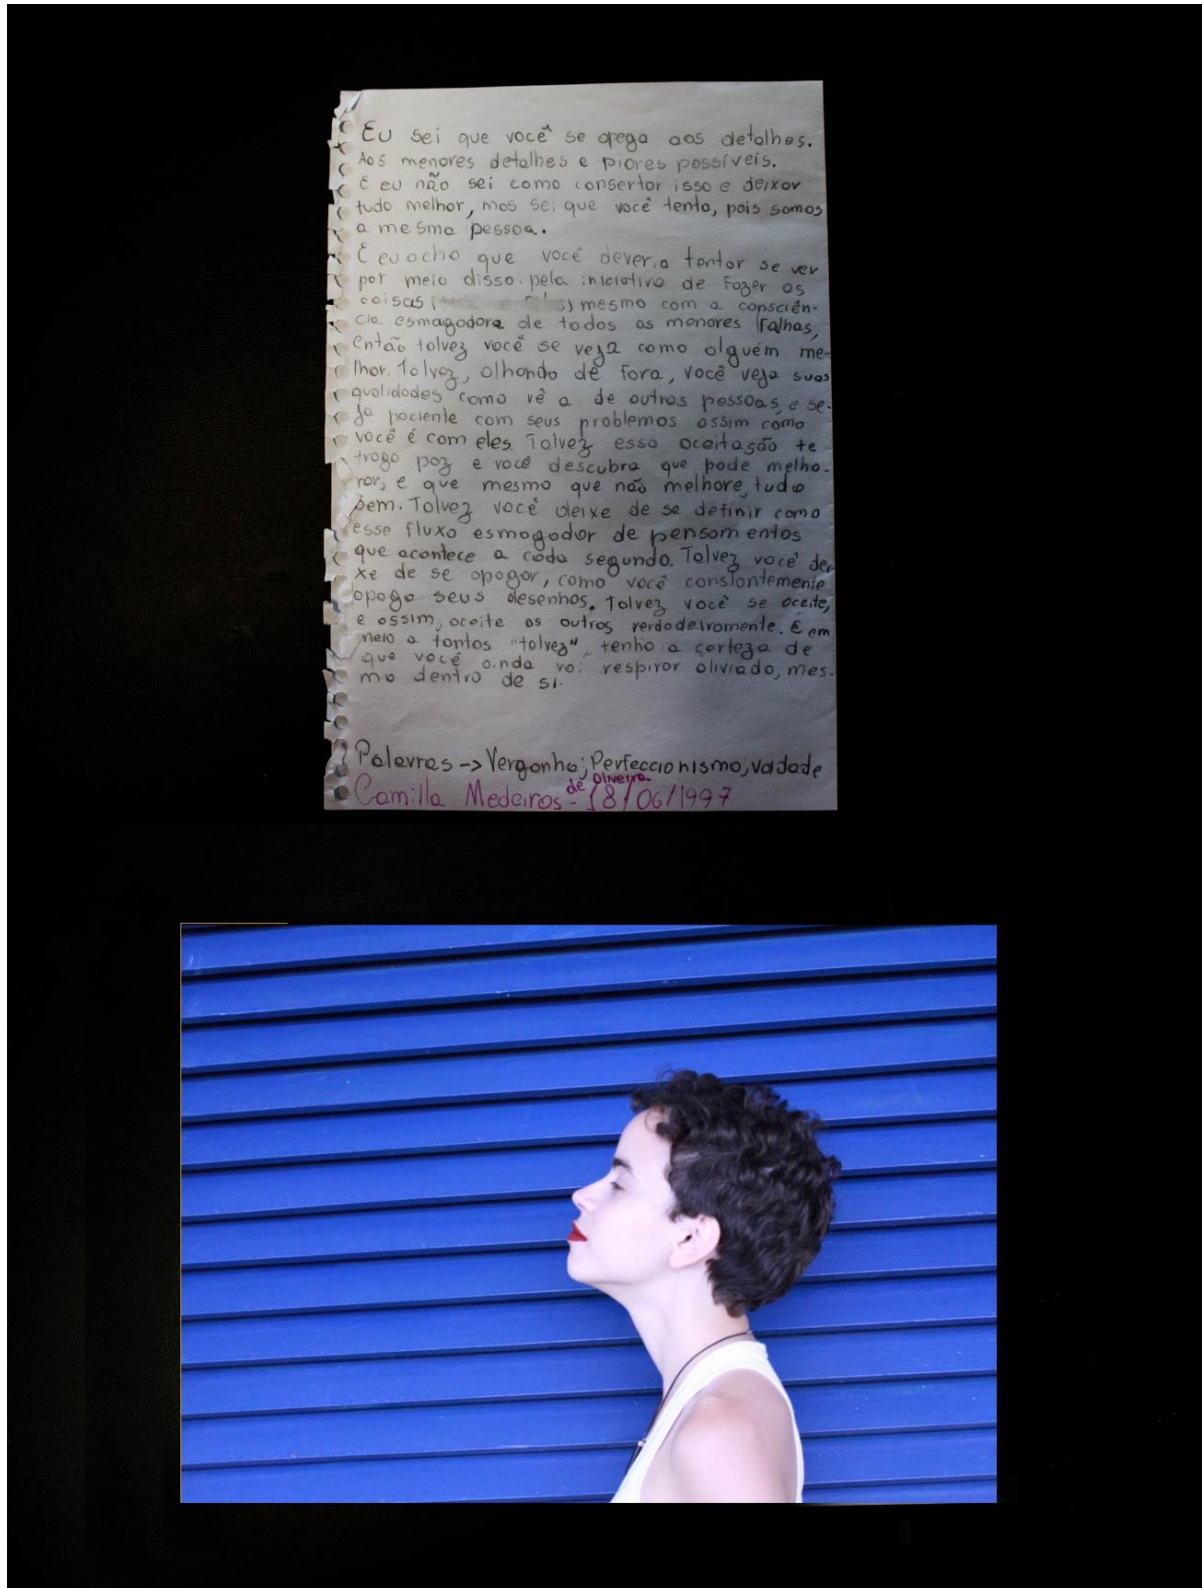 Eu sei que você se apega aos detalhes.
Aos menores detalhes e piores possíveis.
E eu não sei como consertar isso e deixar
tudo melhor, mas sei que você tenta, pois somos
a mesma pessoa.
E eu acho que você deveria tentar se ver
por meio disso. pela iniciativa de fazer as
coisas mesmo com a consciên-
cia esmagadora de todos as menores falhas,
então talvez você se veja como alguém me-
lhor. Talvez, olhando de fora, você veja suas
qualidades como vê a de outras pessoas, e se-
ja paciente com seus problemas assim como
você é com eles. Talvez essa aceitação te
traga paz e você descubra que pode melho-
rar, e que mesmo que não melhore, tudo
bem. Talvez você deixe de se definir como
esse fluxo esmagador de pensamentos
que acontece a cada segundo. Talvez você dei
xe de se apagar, como você constantemente
apaga seus desenhos. Talvez você se aceite,
e assim, aceite os outros verdadeiramente. E em
meio a tantos "talvez", tenho a certeza de
que você ainda vai respirar aliviado, mes-
mo dentro de si.
Palavras -> Vergonha; Perfeccionismo; vaidade
Camilla Medeiros de Oliveira - 18/06/1997